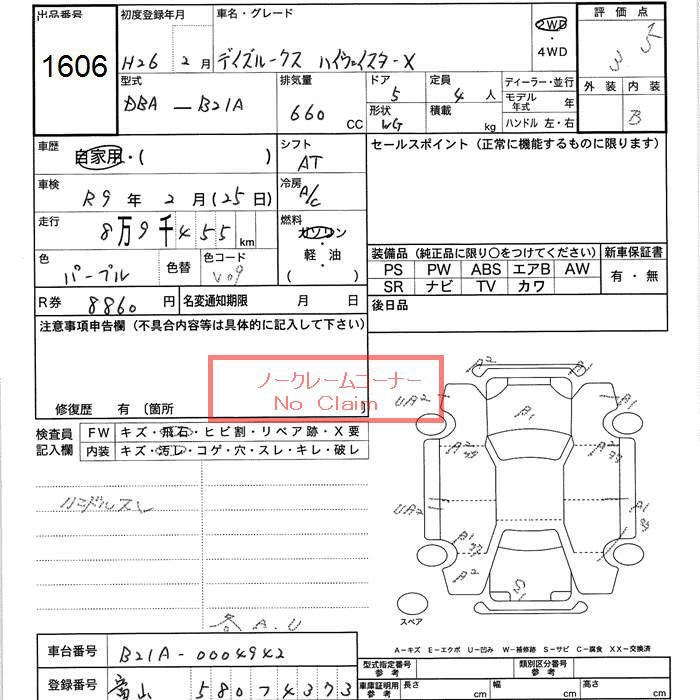 出品番号 初度登録年月 車名・グレード 評価点
1606 H26 2月 デイズルークス ハイウェイスターX 2WD・4WD 3.5
型式 排気量 ドア 定員 ディーラー・並行 外装 内装
DBA-B21A 660CC 5 4人 モデル年式 年 B
形状 WG 積載 kg ハンドル 左・右
車歴 自家用・( ) シフト AT セールスポイント(正常に機能するものに限ります)
車検 R9年2月(25日) 冷房 A/C
走行 8万9千455km 燃料 ガソリン・軽油( )
色 パープル 色替 色コード V09
装備品(純正品に限り○をつけてください) 新車保証書
PS PW ABS エアB AW 有・無
SR ナビ TV カワ
R券 8860円 名変通知期限 月 日 後日品
注意事項申告欄(不具合内容等は具体的に記入して下さい)
ノークレームコーナー
No Claim
修復歴 有〔箇所
検査員記入欄 FW キズ・飛石・ヒビ割・リペア跡・X要
内装 キズ・汚レ・コゲ・穴・スレ・キレ・破レ
ハンドルスレ
各A.U
A2
UA2 B1
UA2 A1
A2 S1
スペア
A-キズ E-エクボ U-凹み W-補修跡 S-サビ C-腐食 XX-交換済
車台番号 B21A-0004942
型式指定番号 参考 類別区分番号 参考
登録番号 富山 580 フ 4373
車庫証明用 参考 長さ cm 幅 cm 高さ cm